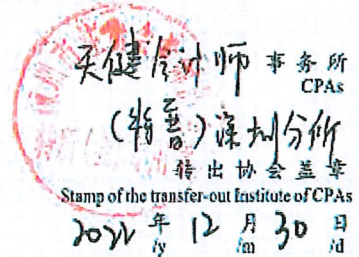 天健会计师 事务所
CPAs
(特普)深圳分所
转出协会盖章
Stamp of the transfer-out Institute of CPAs
2022 年 12 月 30 日
/y /m /d